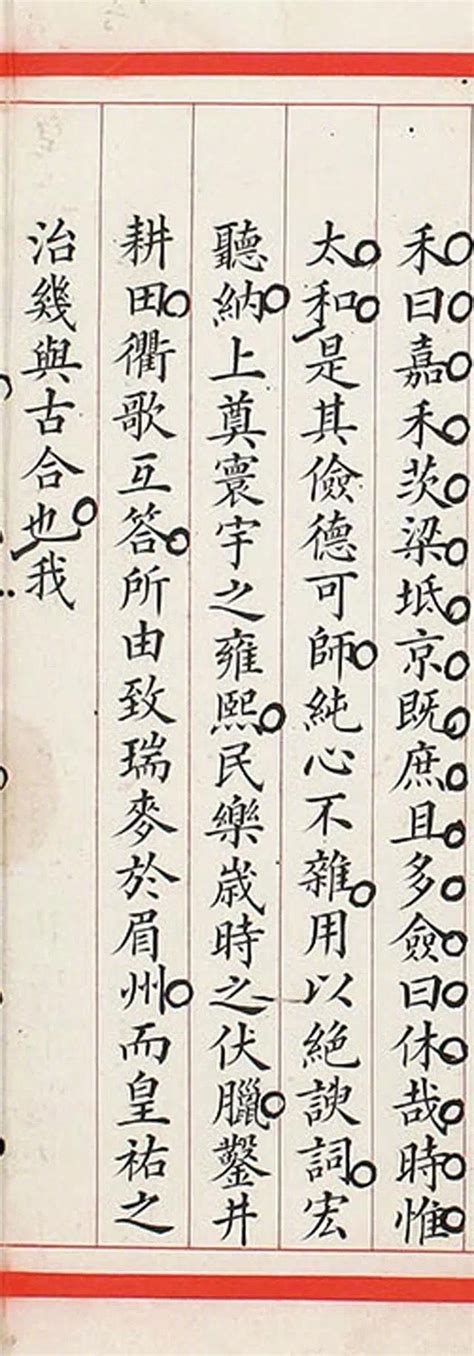 禾曰嘉禾茨梁坻京既庶且多僉曰休哉時惟
太和是其儉德可師純心不雜用以絕諛詞宏
聽納上奠寰宇之雍熙民樂歲時之伏臘鑿井
耕田衢歌互答所由致瑞麥於眉州而皇祐之
治幾與古合也我